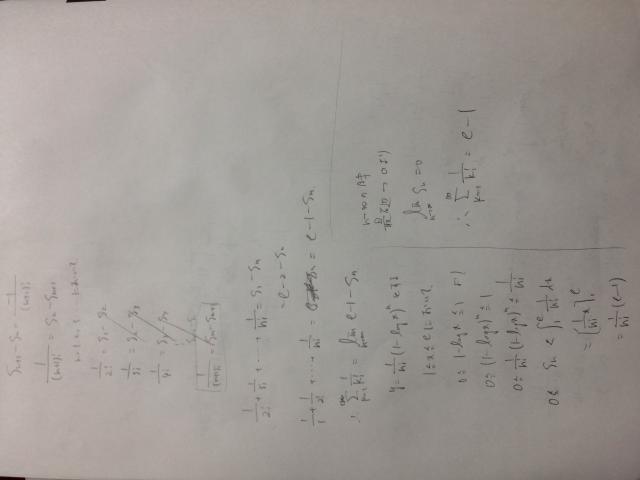 S_{n+1} - S_n = -\frac{1}{(n+1)!}
\frac{1}{(n+1)!} = S_n - S_{n+1}
\frac{1}{2!} = S_1 - S_2
\frac{1}{3!} = S_2 - S_3
\frac{1}{4!} = S_3 - S_4
\frac{1}{2!} + \frac{1}{3!} + \cdots + \frac{1}{n!} = S_1 - S_n
= e - 2 - S_n
\frac{1}{1} + \frac{1}{2!} + \cdots + \frac{1}{n!} = e - 1 - S_n
\therefore \sum_{k=1}^{\infty} \frac{1}{k!} = \lim_{n \to \infty} e - 1 - S_n
y = \frac{1}{n!}(1 - \log x)^n
1 \leq x \leq e
0 \leq 1 - \log x \leq 1 より
0 \leq (1 - \log x)^n \leq 1
0 \leq \frac{1}{n!}(1 - \log x)^n \leq \frac{1}{n!}
0 \leq S_n < \int_1^e \frac{1}{n!} dx
= \left[\frac{1}{n!}x\right]_1^e
= \frac{1}{n!}(e - 1)
n \to \infty の時
→ 0 より
\lim_{n \to \infty} S_n = 0
\therefore \sum_{k=1}^{\infty} \frac{1}{k!} = e - 1